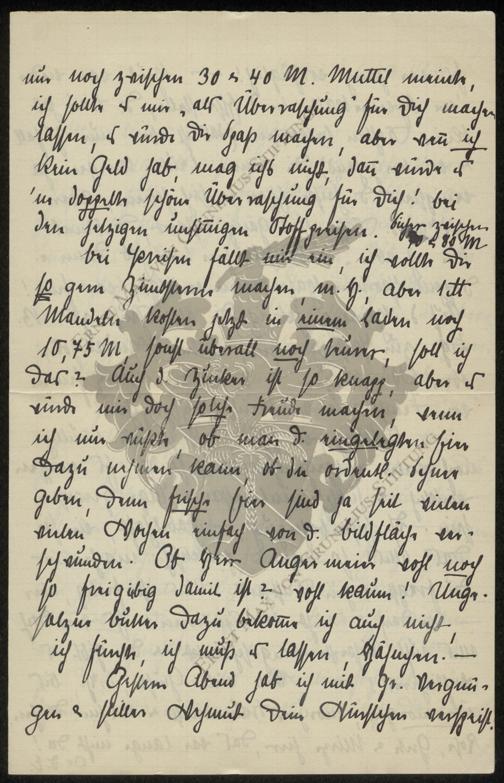 nur noch zwischen 30 & 40 M. Muttel meinte,
ich sollte es mir „als Überraschung" für Dich machen
lassen, es würde Dir Spaß machen, aber wenn ich
kein Geld hab, mag ichs nicht, dann würde es
'ne doppelte schöne Überraschung für Dich! bei
den jetzigen unsinnigen Stoffpreisen. Sicher zwischen
& 80 M
bei Preisen fällt mir ein, ich wollte Dir
so gern Zimtsterne machen, m. H., aber 1 ℔
Mandeln kosten jetzt in einem Laden noch
10,75 M, sonst überall noch teurer, soll ich
das? Auch d. Zucker ist so knapp, aber es
würde mir doch solche Freude machen, wenn
ich nur wüßte, ob man d. eingelegten Eier
dazu nehmen kann, ob die ordentl. Schnee
geben, denn frische Eier sind ja seit vielen
vielen Wochen einfach von d. Bildfläche ver-
schwunden. Ob Herr Angermeier wohl noch
so freigibig damit ist? wohl kaum! Unge-
salzne Butter dazu bekomme ich auch nicht,
ich fürchte, ich muß es lassen, Hähnchen. —
Gestern Abend hab ich mit gr. Vergnü-
gen & stiller Wehmut Dein Würstchen verspeist.
ERNST MAX VON GRUNELIUS-STIFTUNG